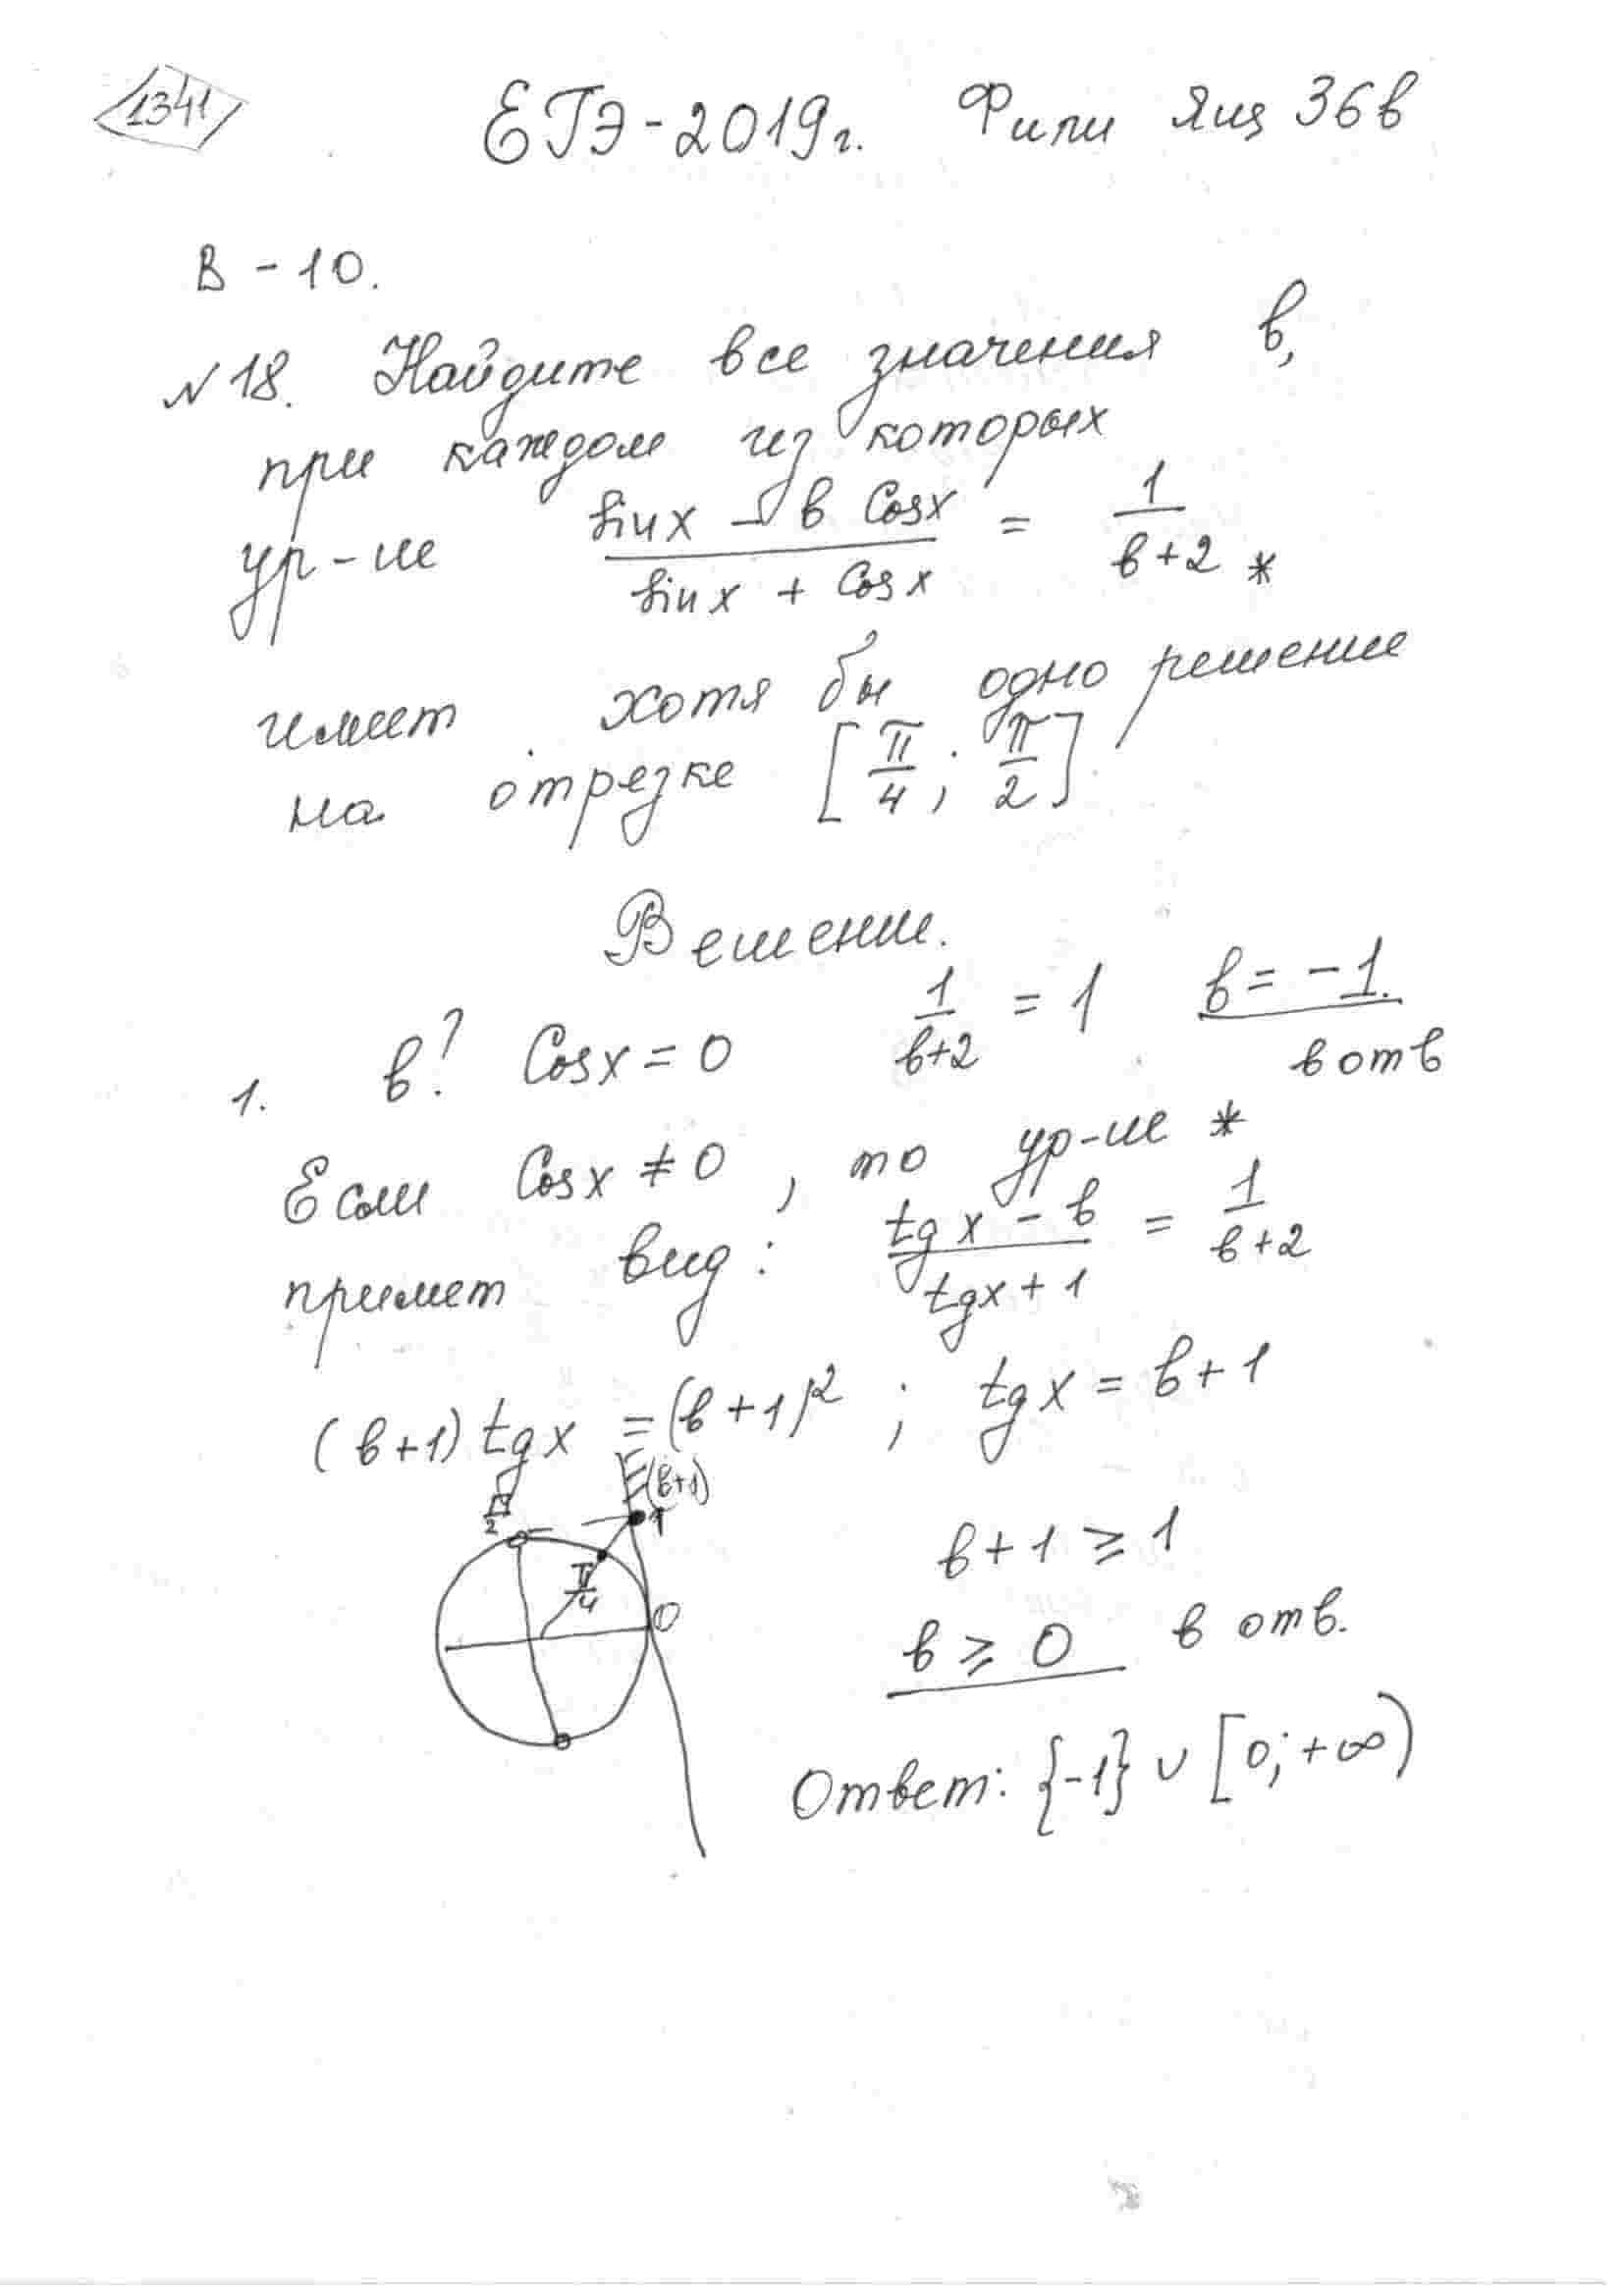 1341
ЕГЭ-2019г. Фипи Ящ 36в
В-10.
№18. Найдите все значения в,
при каждом из которых
ур-ие (sinx - в cosx)/(sinx + cosx) = 1/(в+2) *
имеет хотя бы одно решение
на отрезке [π/4; π/2].
Решение.
1. в? Cosx = 0 1/(в+2) = 1 в = -1.
в отв
Если Cosx ≠ 0, то ур-ие *
примет вид: (tgx - в)/(tgx + 1) = 1/(в+2)
(в+1) tgx = (в+1)²; tgx = в+1
π/2 (в+1)
1
π/4
0
в+1 ≥ 1
в ≥ 0 в отв.
Ответ: {-1} ∪ [0; +∞)